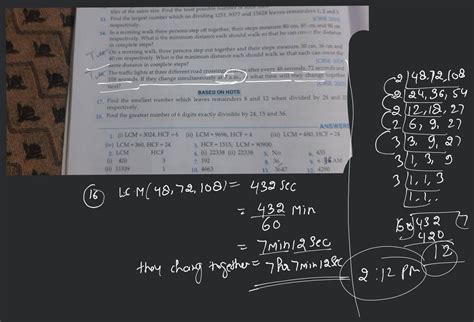 tiles of the same size. Find the least possible number of
13. Find the largest number which on dividing 1251, 9377 and 15628 leaves remainders 1, 2 and 3
respectively.
14. In a morning walk three persons step off together, their steps measure 80 cm, 85 cm and 90 cm
respectively. What is the minimum distance each should walk so that he can cover the distance
in complete steps?
On a morning walk, three persons step out together and their steps measure 30 cm, 36 cm and
40 cm respectively. What is the minimum distance each should walk so that each can cover the
same distance in complete steps?
16. The traffic lights at three different road crossings after every 48 seconds, 72 seconds and
108 seconds. If they change simultaneously at what time will they change together
next?
BASED ON HOTS
17. Find the smallest number which leaves remainders 8 and 12 when divided by 28 and 32
respectively.
18. Find the greatest number of 6 digits exactly divisible by 24, 15 and 36.
ANSWERS
1. (i) LCM = 3024, HCF = 6 (ii) LCM = 9696, HCF = 4 (iii) LCM = 480, HCF = 24
(iv) LCM = 360, HCF = 24 3. HCF = 1515, LCM = 90900
2. LCM HCF 4. (i) 22338 (ii) 22338 5. No 6. 435
(i) 420 3 7. 192 8. 36 9. AM
(ii) 11339 1 10. 4663 11. 3647 12. 4290
(16) LCM(48,72,108) = 432 Sec
= 432/60 Min
= 7min12Sec
they chang together = 7min12Sec
2:12 pm
2|48,72,108
2|24,36,54
2|12,18,27
2|6,9,27
3|3,9,27
3|1,3,9
3|1,1,3
1,1,1
60|432|7
420
12